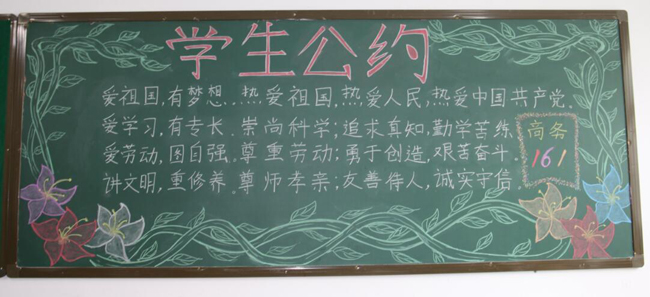 学生公约
爱祖国，有梦想．热爱祖国，热爱人民，热爱中国共产党．
爱学习，有专长．崇尚科学；追求真知，勤学苦练．
爱劳动，图自强．尊重劳动；勇于创造，艰苦奋斗．
讲文明，重修养．尊师孝亲；友善待人，诚实守信．
商务
161